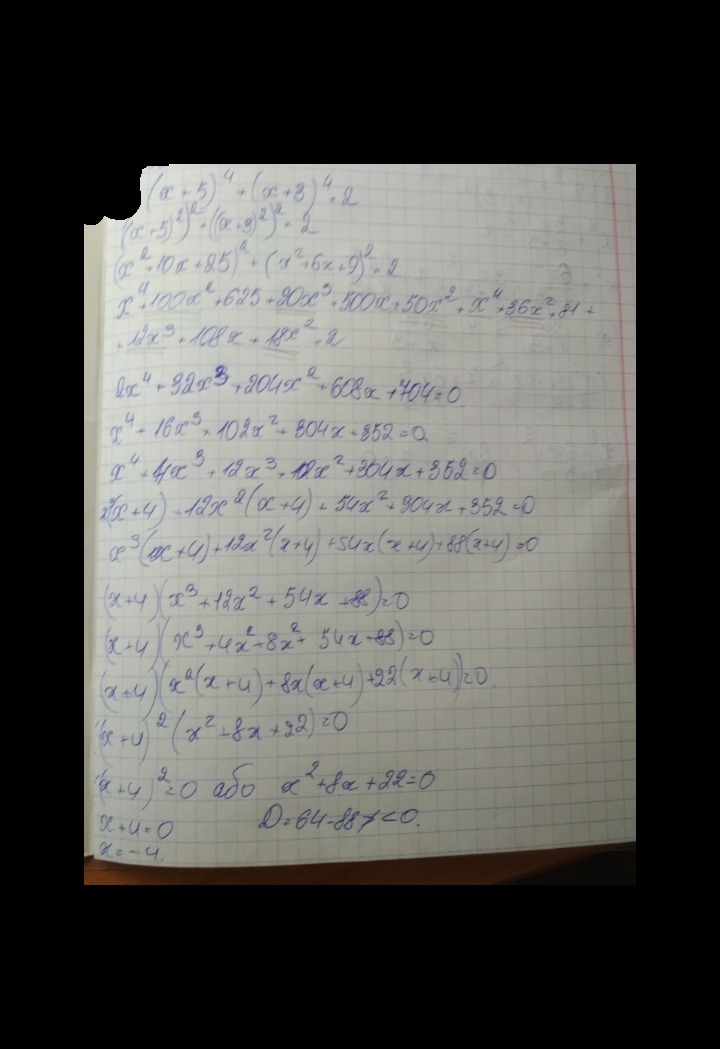 (x+5)⁴+(x+3)⁴=2
(x+5)²)²+((x+3)²)²=2
(x²+10x+25)²+(x²+6x+9)²=2
x⁴+100x²+625+20x³+500x+50x²+x⁴+36x²+81+
+12x³+108x+18x²=2
2x⁴+32x³+204x²+608x+704=0
x⁴+16x³+102x²+304x+352=0
x⁴+4x³+12x³+102x²+304x+352=0
x³(x+4)+12x²(x+4)+54x²+304x+352=0
x³(x+4)+12x²(x+4)+54x(x+4)+88(x+4)=0
(x+4)(x³+12x²+54x+88)=0
(x+4)(x³+4x²+8x²+54x+88)=0
(x+4)(x²(x+4)+8x(x+4)+22(x+4))=0
(x+4)²(x²+8x+22)=0
(x+4)²=0 або x²+8x+22=0
x+4=0 D=64-88<0.
x=-4.